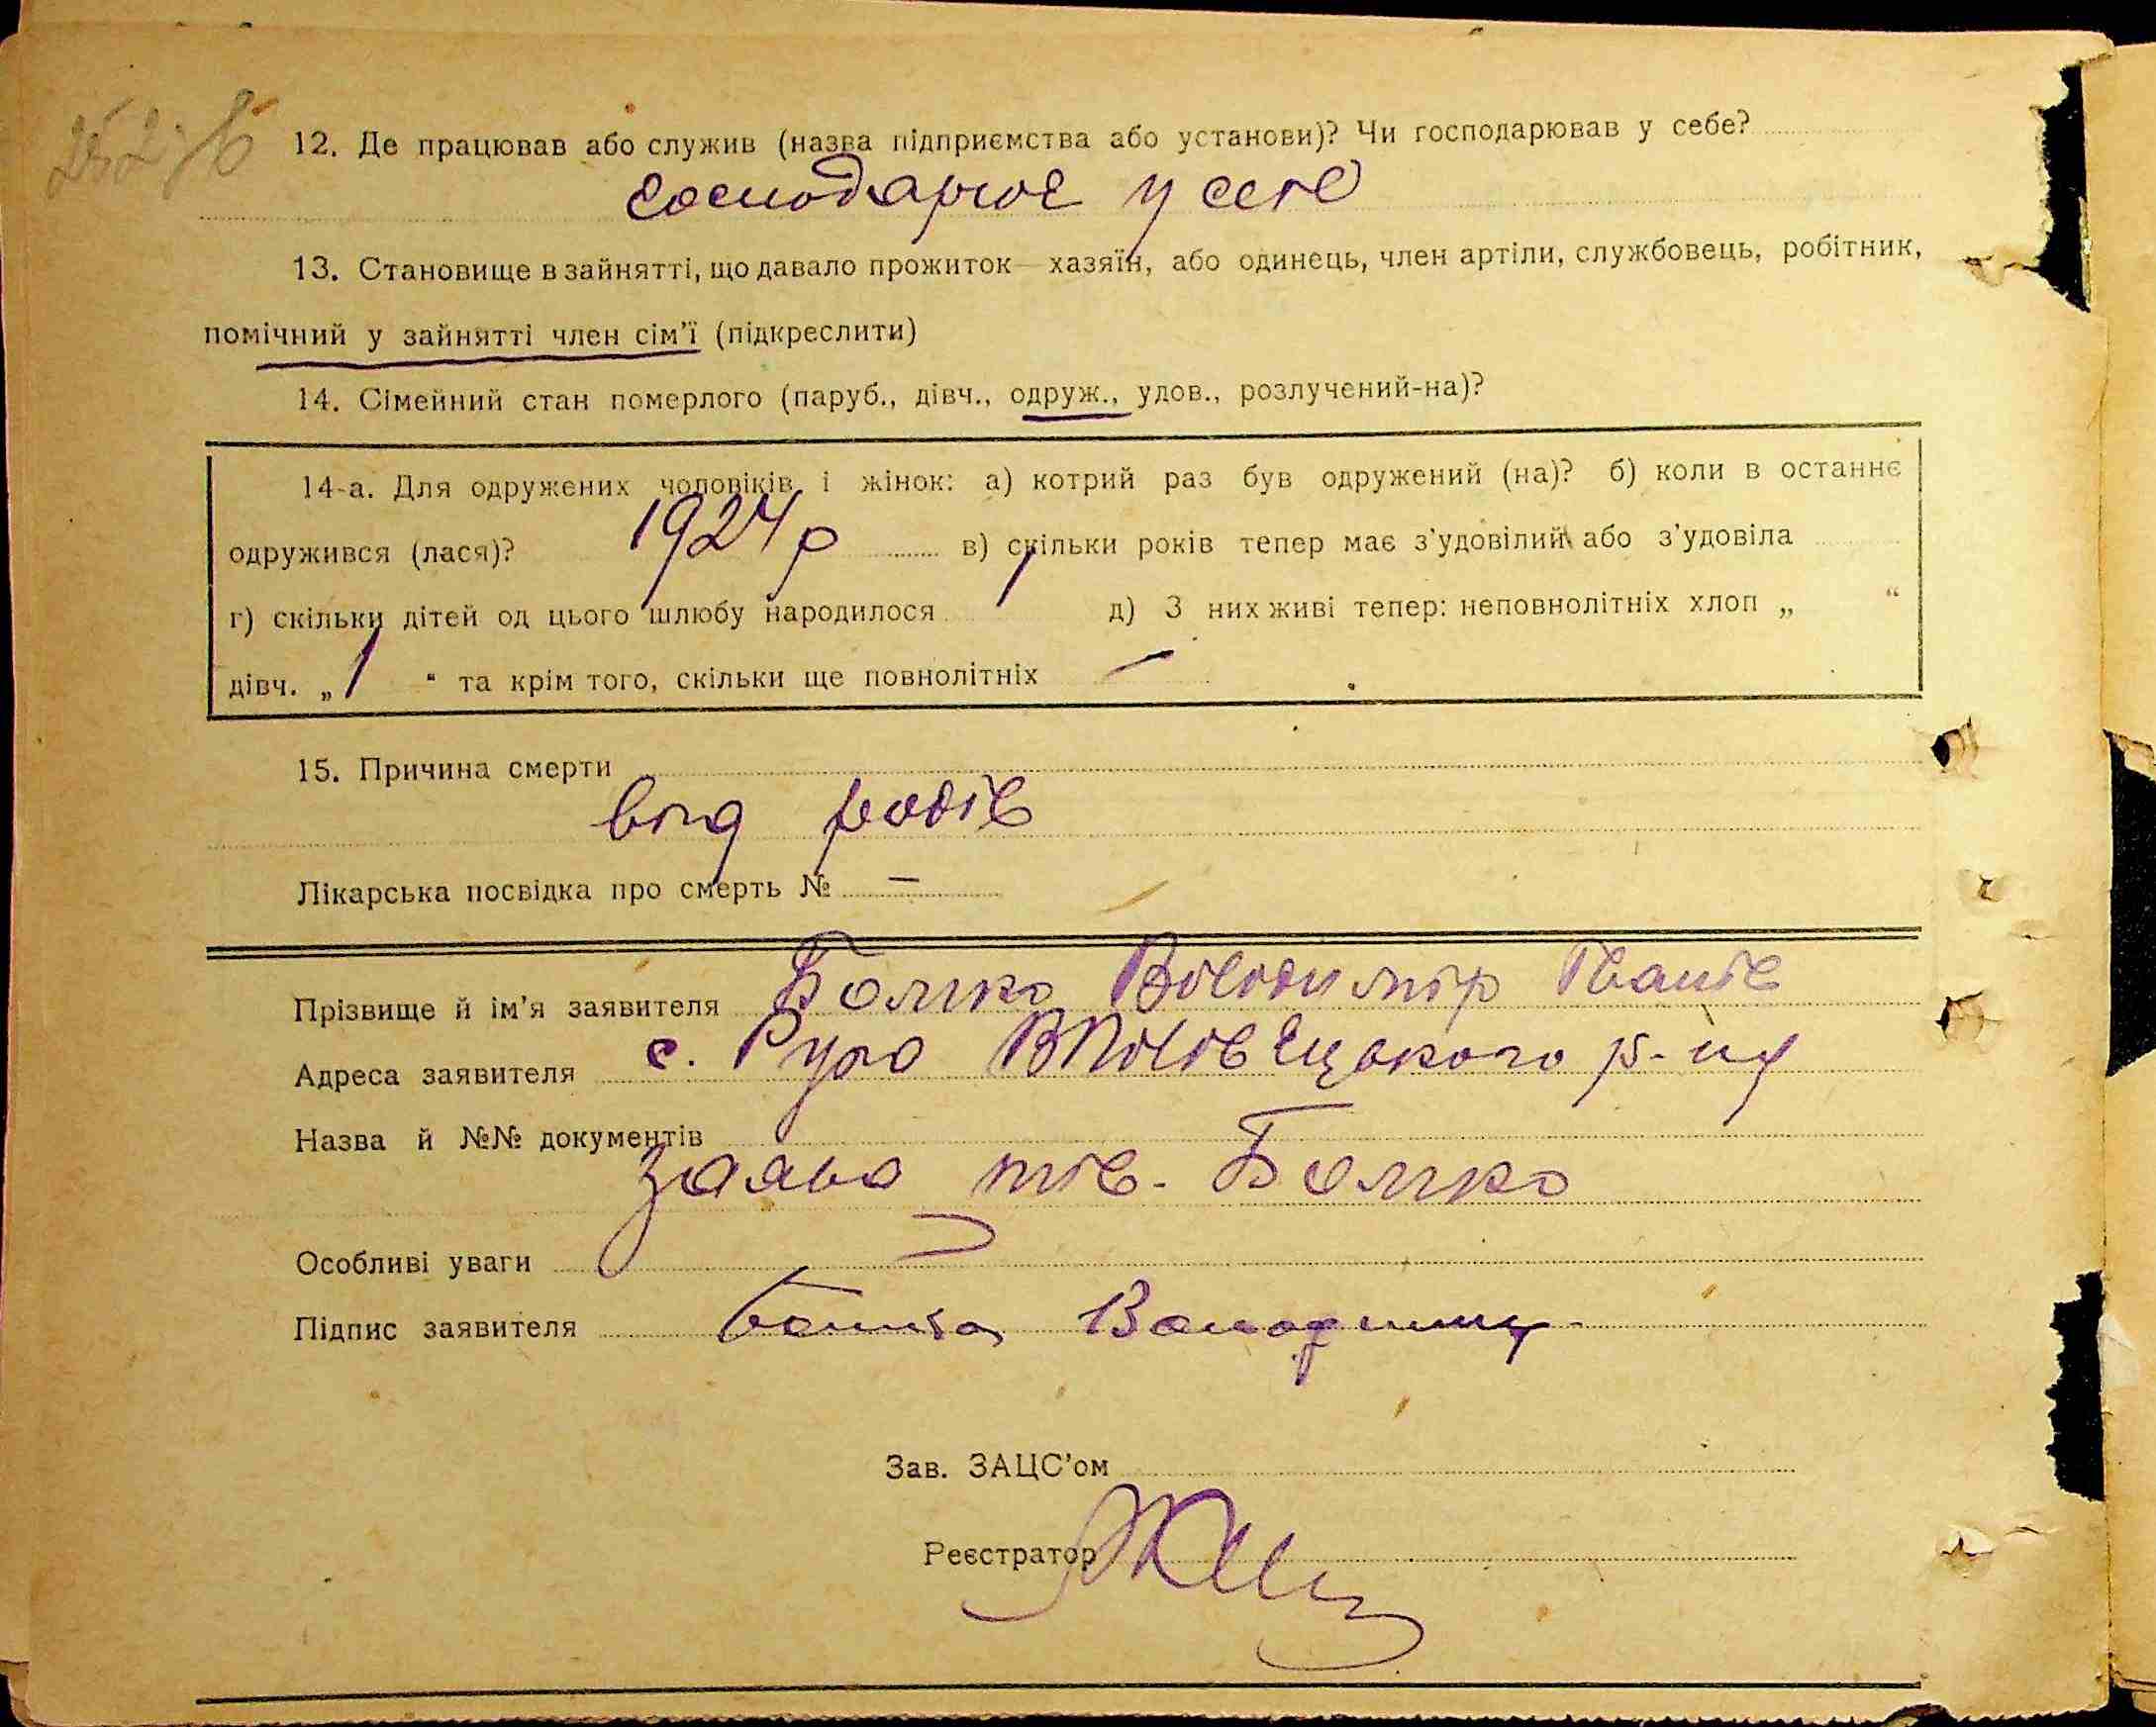 12. Де працював або служив (назва підприємства або установи)? Чи господарював у себе?
господарює у селі
13. Становище в зайнятті, що давало прожиток — хазяїн, або одинець, член артіли, службовець, робітник,
помічний у зайнятті член сім'ї (підкреслити)
14. Сімейний стан померлого (паруб., дівч., одруж., удов., розлучений-на)?
14-а. Для одружених чоловіків і жінок: а) котрий раз був одружений (на)? б) коли в останнє
одружився (лася)? 1924 р в) скільки років тепер має з'удовілий або з'удовіла
г) скільки дітей од цього шлюбу народилося 1 д) З них живі тепер: неповнолітніх хлоп „ “
дівч. „ 1 “ та крім того, скільки ще повнолітніх —
15. Причина смерти
від родів
Лікарська посвідка про смерть № —
Прізвище й ім'я заявителя Бойко Володимір Іванів
Адреса заявителя с. р-ну
Назва й №№ документів
заява тов. Бойко
Особливі уваги
Підпис заявителя Бойко
Зав. ЗАЦС'ом
Реєстратор